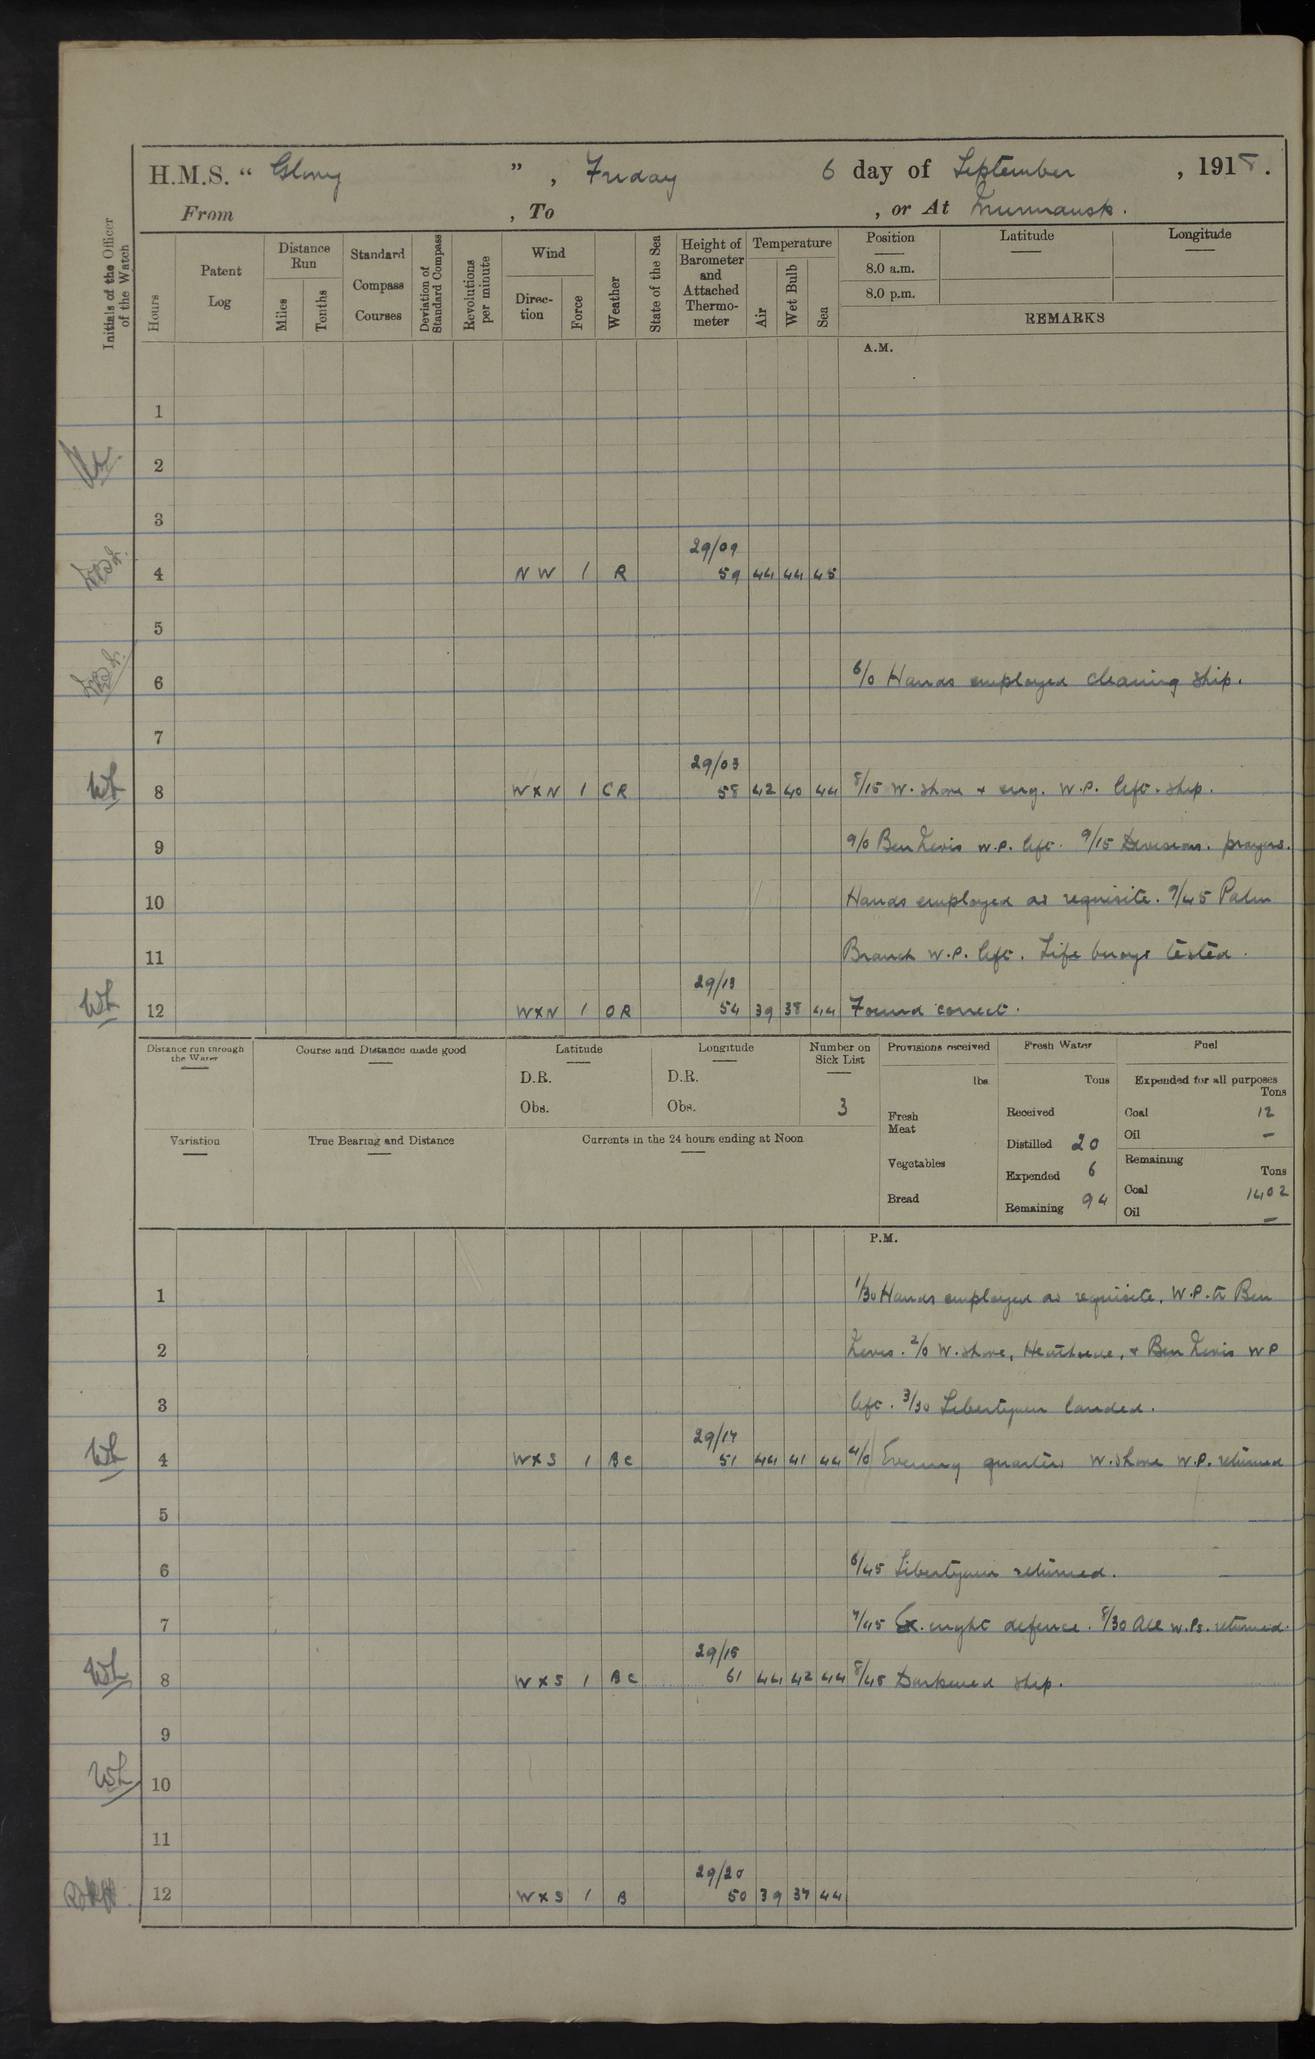 H.M.S. “ Glory ” , Friday 6 day of September , 1918.
From , To , or At Murmansk.
Initials of the Officer of the Watch
Hours
Patent Log
Distance Run
Miles
Tenths
Standard Compass Courses
Deviation of Standard Compass
Revolutions per minute
Wind
Direc-tion
Force
Weather
State of the Sea
Height of Barometer and Attached Thermo-meter
Temperature
Air
Wet Bulb
Sea
Position
8.0 a.m.
8.0 p.m.
Latitude
Longitude
REMARKS
A.M.
1
2
3
29/09
4 N W 1 R 59 44 44 45
5
6 6/0 Hands employed cleaning ship.
7
29/03
8 W x N 1 C R 58 42 40 44 8/15 W. Shore + eng. W.P. left ship.
9 9/0 Ben Nevis W.P. left. 9/15 Divisions. prayers.
10 Hands employed as requisite. 9/45 Palm
11 Branch W.P. left. Life buoys tested.
29/13
12 W x N 1 O R 54 39 38 44 Found correct.
Distance run through the Water
Course and Distance made good
Latitude
D.R.
Obs.
Longitude
D.R.
Obs.
Number on Sick List
3
Provisions received
lbs.
Fresh Meat
Vegetables
Bread
Fresh Water
Tons
Received
Distilled 20
Expended 6
Remaining 94
Fuel
Expended for all purposes
Tons
Coal 12
Oil –
Remaining
Tons
Coal 1402
Oil –
Variation
True Bearing and Distance
Currents in the 24 hours ending at Noon
P.M.
1 1/30 Hands employed as requisite. W.P. to Ben
2 Nevis. 2/0 W. Shore, + Ben Nevis W P
3 left. 3/30 Libertymen landed.
29/14
4 W x S 1 B C 51 44 41 44 4/0 Evening quarters W. Shore W.P. returned
5
6 6/45 Libertymen returned.
7 7/45 Ex. night defence. 8/30 All W.Ps. returned.
29/15
8 W x S 1 B C 61 44 42 44 8/45 Darkened ship.
9
10
11
29/20
12 W x S 1 B 50 39 37 44
WL
WL
WL
WL
WL